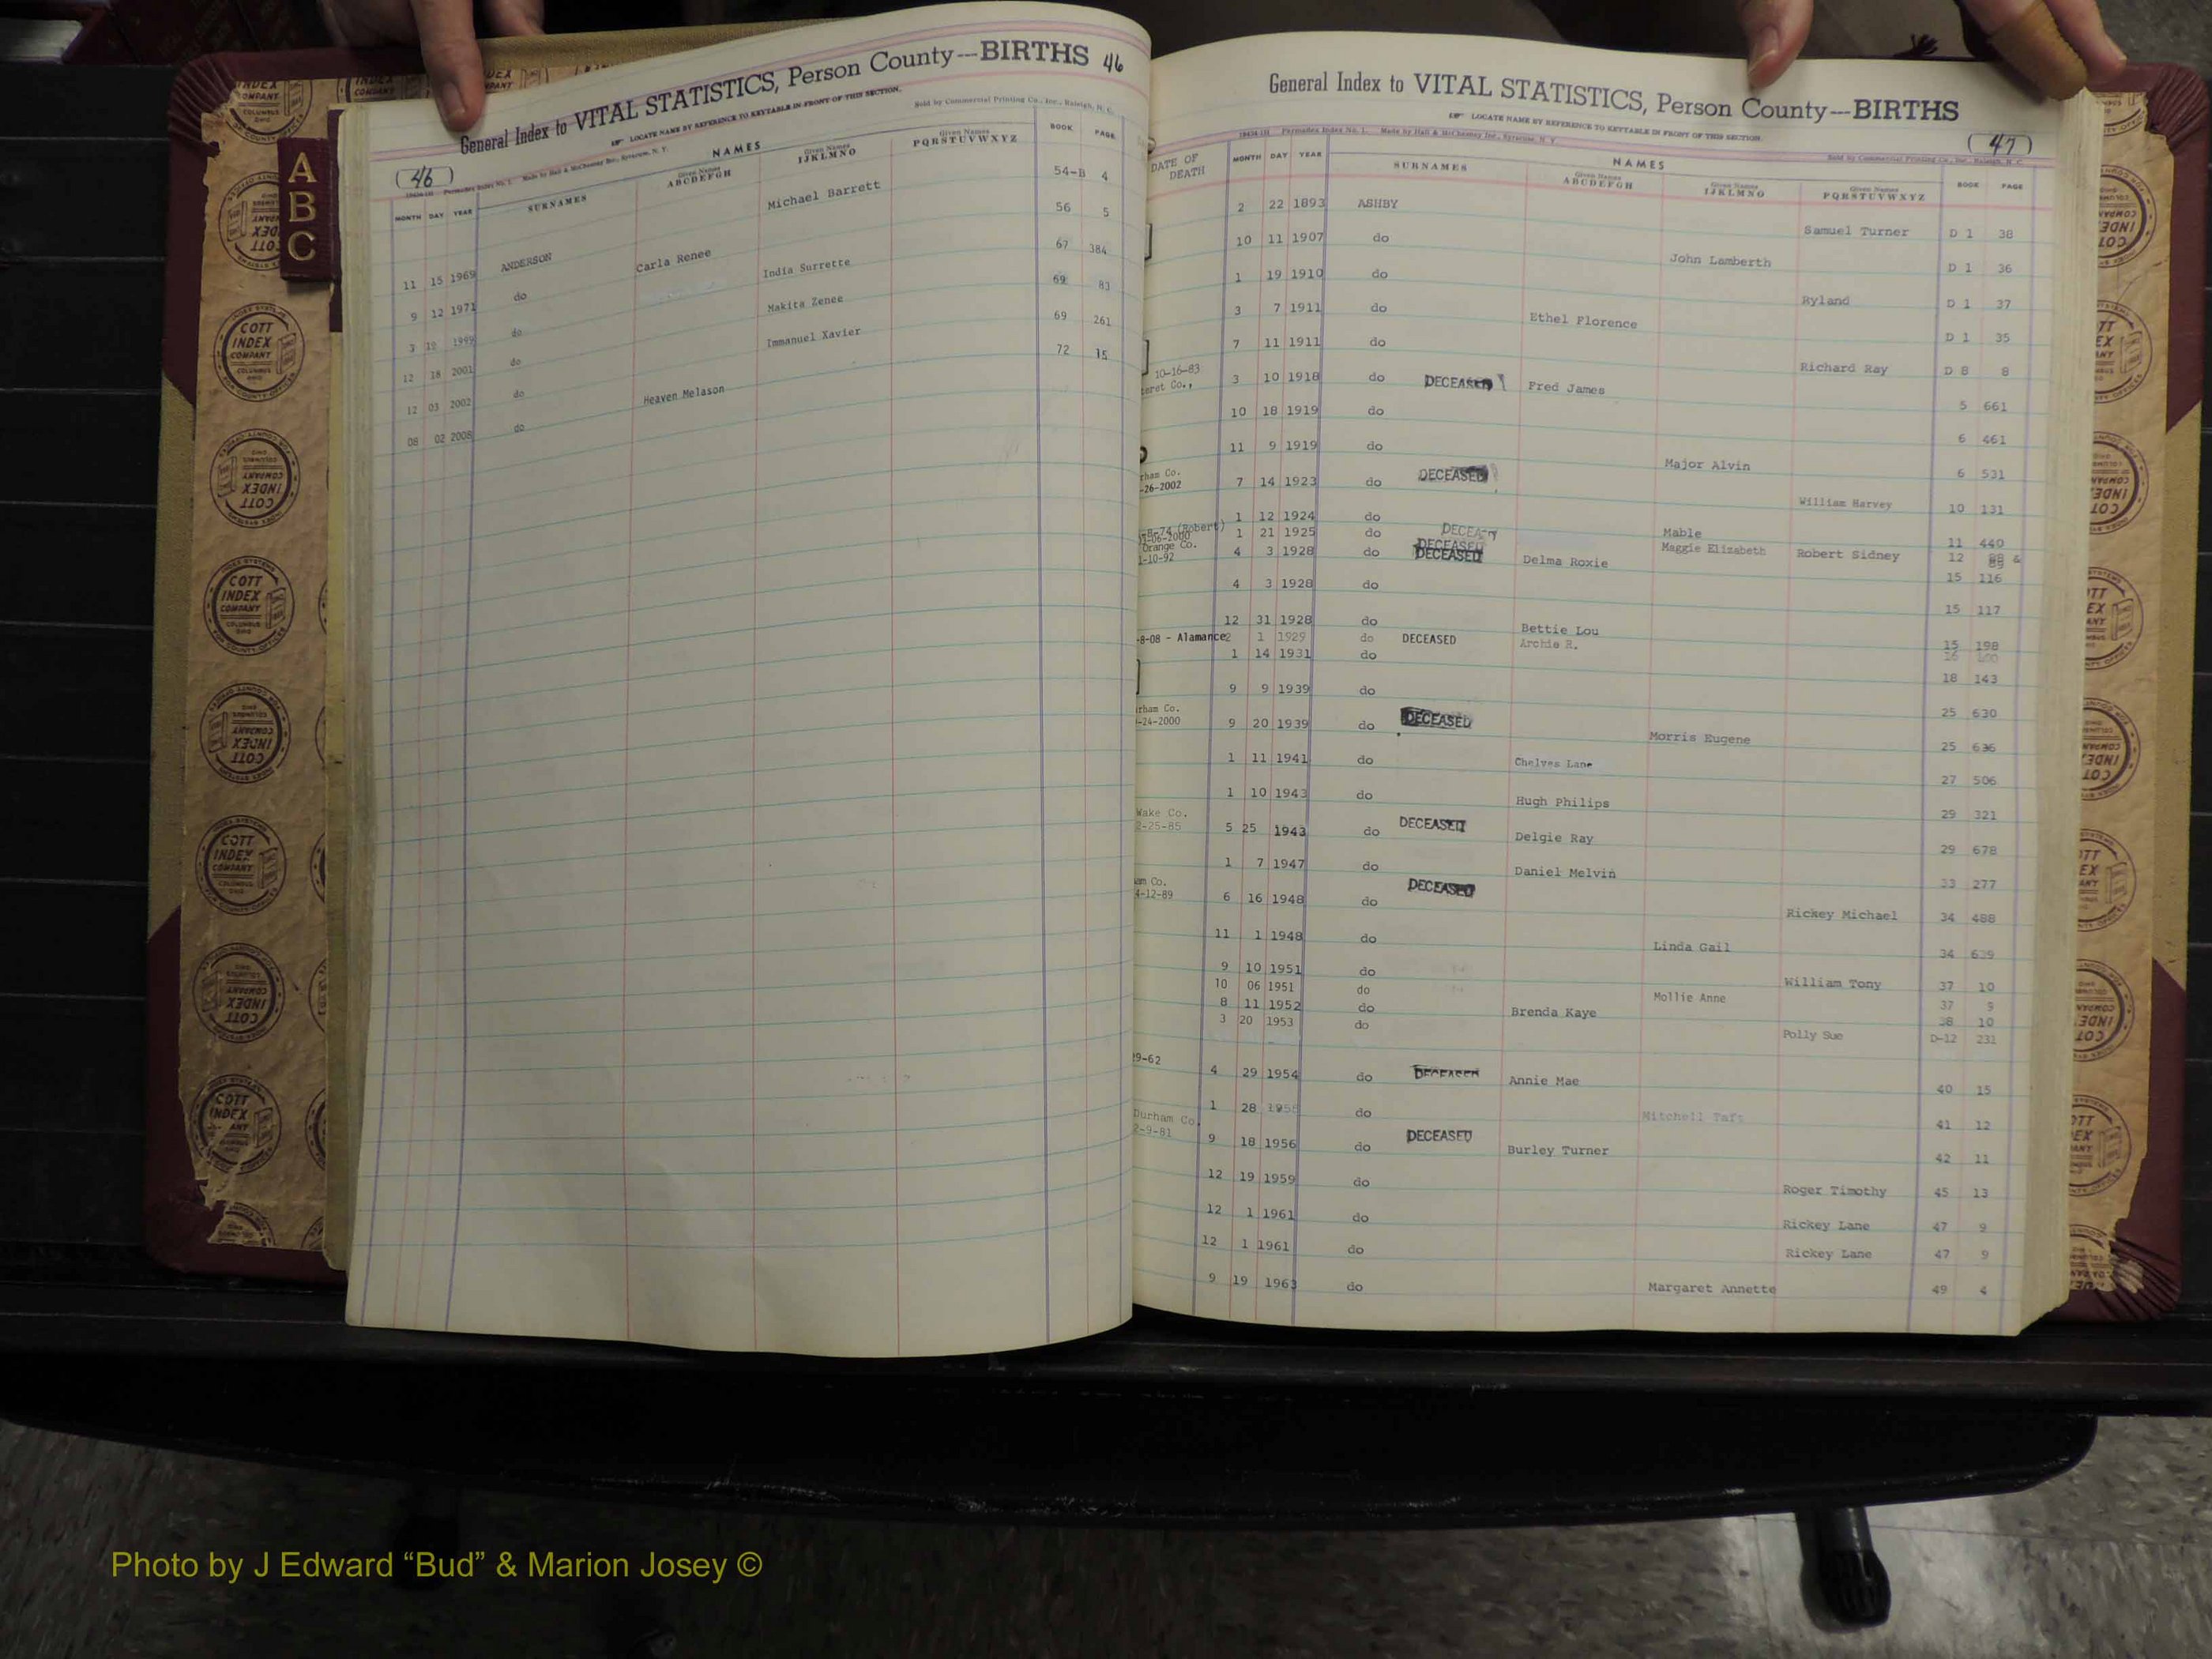 General Index to VITAL STATISTICS, Person County—BIRTHS 46
LOCATE NAME BY REFERENCE TO KEYTABLE IN FRONT OF THIS SECTION.
(46) Made by Hall & McChesney Inc., Syracuse, N. Y. Sold by Commercial Printing Co., Inc., Raleigh, N. C.
NAMES
MONTH DAY YEAR SURNAMES Given Names ABCDEFGH Given Names IJKLMNO Given Names PQRSTUVWXYZ BOOK PAGE
11 15 1969 ANDERSON Michael Barrett 54-B 4
9 12 1971 do Carla Renee 56 5
3 1999 do India Surrette 67 384
12 18 2001 do Makita Zenee 69 83
12 03 2002 do Immanuel Xavier 69 261
08 02 2008 do Heaven Melason 72 15
A
B
C
General Index to VITAL STATISTICS, Person County—BIRTHS
LOCATE NAME BY REFERENCE TO KEYTABLE IN FRONT OF THIS SECTION.
Permadex Index No. 1. Made by Hall & McChesney Inc., Syracuse, N. Y. Sold by Commercial Printing Co., Inc., Raleigh, N. C. (47)
NAMES
DATE OF DEATH MONTH DAY YEAR SURNAMES Given Names ABCDEFGH Given Names IJKLMNO Given Names PQRSTUVWXYZ BOOK PAGE
2 22 1893 ASHBY Samuel Turner D 1 38
10 11 1907 do John Lamberth D 1 36
1 19 1910 do Ryland D 1 37
3 7 1911 do Ethel Florence D 1 35
7 11 1911 do Richard Ray D 8 8
10-16-83
3 10 1918 do DECEASED Fred James 5 661
10 18 1919 do 6 461
11 9 1919 do Major Alvin 6 531
-26-2002 7 14 1923 do DECEASED William Harvey 10 131
1 12 1924 do Mable 11 440
(Robert) 1 21 1925 do DECEASED Maggie Elizabeth Robert Sidney 12 88 & 89
Orange Co.
4 3 1928 do DECEASED Delma Roxie 15 116
4 3 1928 do 15 117
12 31 1928 do Bettie Lou 15 198
-8-08 - Alamance 2 1 1929 do DECEASED Archie R.
1 14 1931 do 18 143
9 9 1939 do 25 630
-24-2000 9 20 1939 do DECEASED Morris Eugene 25 636
1 11 1941 do Chelves Lane 27 506
1 10 1943 do Hugh Philips 29 321
Wake Co.
2-25-85 5 25 1943 do DECEASED Delgie Ray 29 678
1 7 1947 do Daniel Melvin 33 277
4-12-89 6 16 1948 do DECEASED Rickey Michael 34 488
11 1 1948 do Linda Gail 34 639
9 10 1951 do William Tony 37 10
10 06 1951 do Mollie Anne 37 9
8 11 1952 do Brenda Kaye 38 10
3 20 1953 do Polly Sue D-12 231
9-62 4 29 1954 do DECEASED Annie Mae 40 15
1 28 do Mitchell Taft 41 12
Durham Co.
2-9-81 9 18 1956 do DECEASED Burley Turner 42 11
12 19 1959 do Roger Timothy 45 13
12 1 1961 do Rickey Lane 47 9
12 1 1961 do Rickey Lane 47 9
9 19 1963 do Margaret Annette 49 4
COTT INDEX COMPANY COLUMBUS OHIO
Photo by J Edward “Bud” & Marion Josey ©